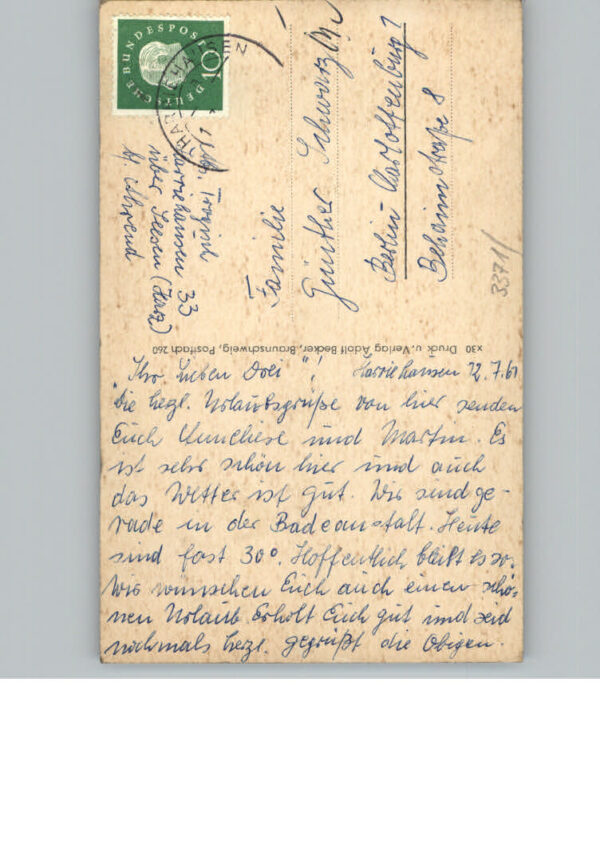 DEUTSCHE BUNDESPOST
10
HARRIEHAUSEN
Abs. Trogisch
Harriehausen 33
über Seesen (Harz)
Familie
Günther Schwarz
Berlin-Charlottenburg 1
Behaimstraße 8
3371/
x30 Druck u. Verlag Adolf Becker, Braunschweig, Postfach 260
Ihr lieben Drei"! Harriehausen 22.7.61
Die hezl. Urlaubsgrüße von hier senden
Euch Anneliese und Martin. Es
ist sehr schön hier und auch
das Wetter ist gut. Wir sind ge-
rade in der Badeanstalt. Heute
sind fast 30°. Hoffentlich bleibt es so.
Wir wünschen Euch auch einen schö-
nen Urlaub. Erholt Euch gut und seid
nochmals hezl. gegrüßt die Obigen.